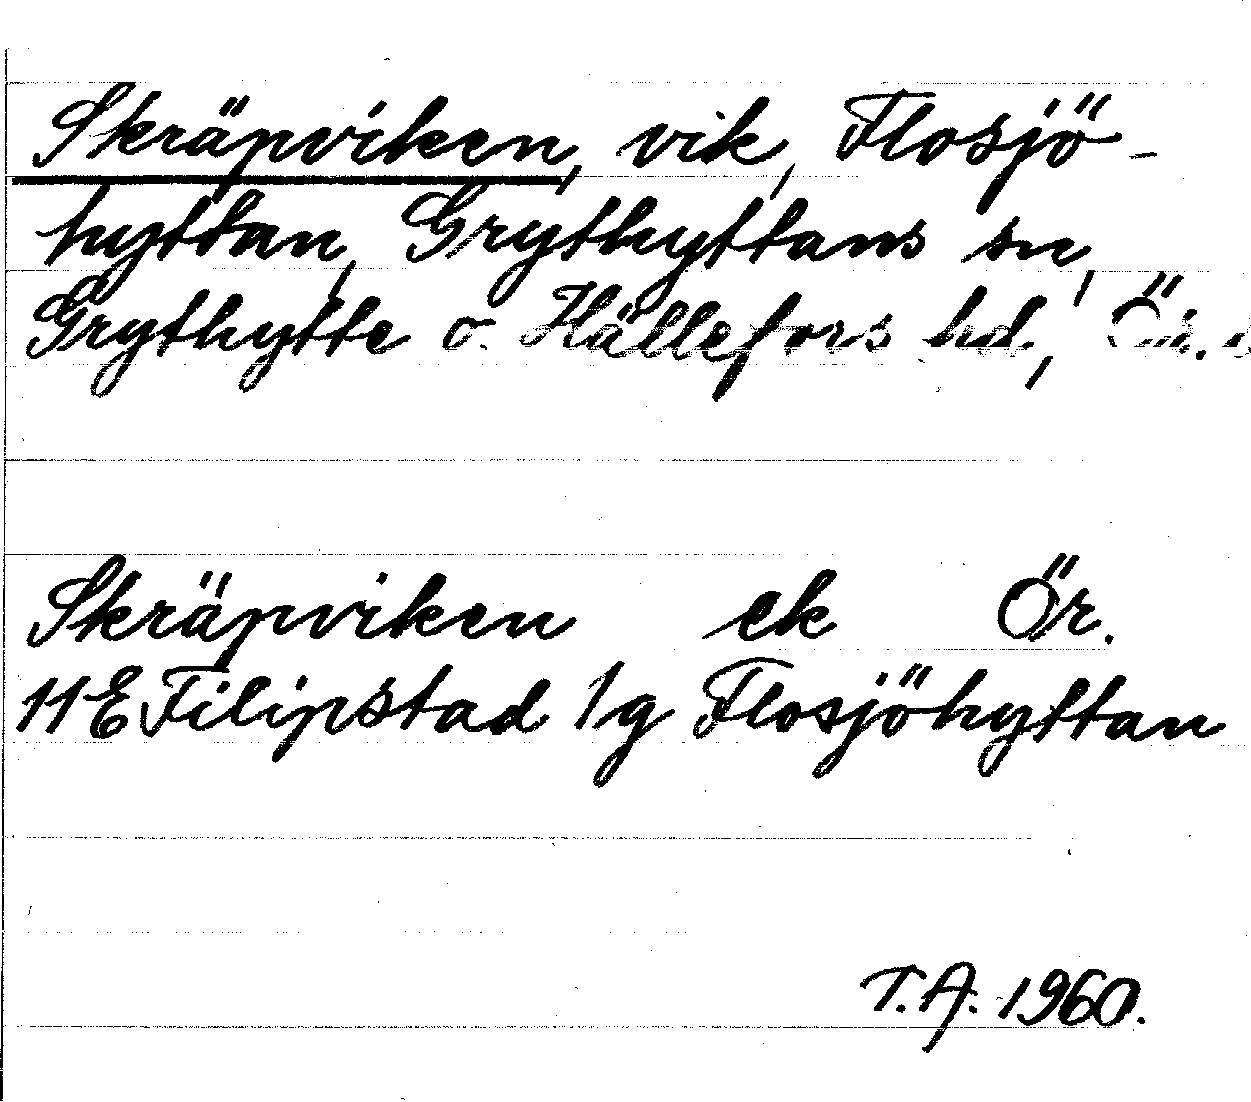 Skräpviken, vik, Flosjö-
hyttan, Grythyttans sn,
Grythytte o. Hällefors hd, Ör.
Skräpviken ek Ör.
11E Filipstad 1g Flosjöhyttan
T.A. 1960.